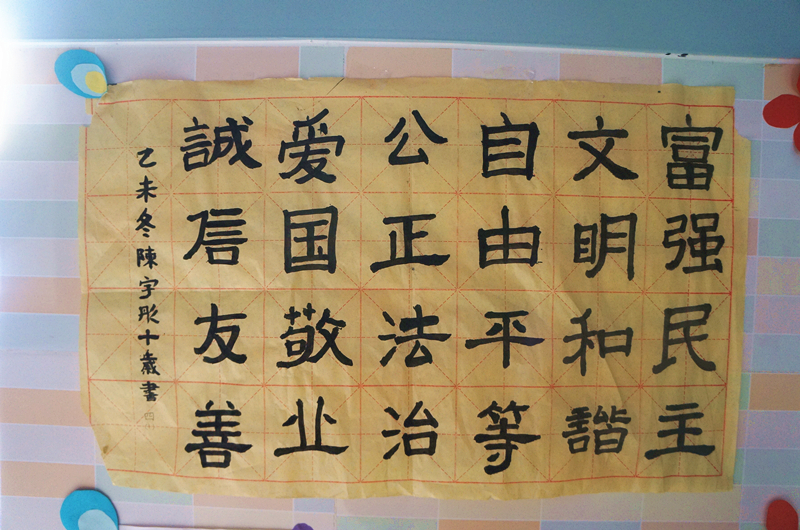 富强民主
文明和諧
自由平等
公正法治
爱国敬业
誠信友善
乙未冬陳宇彤十歲書